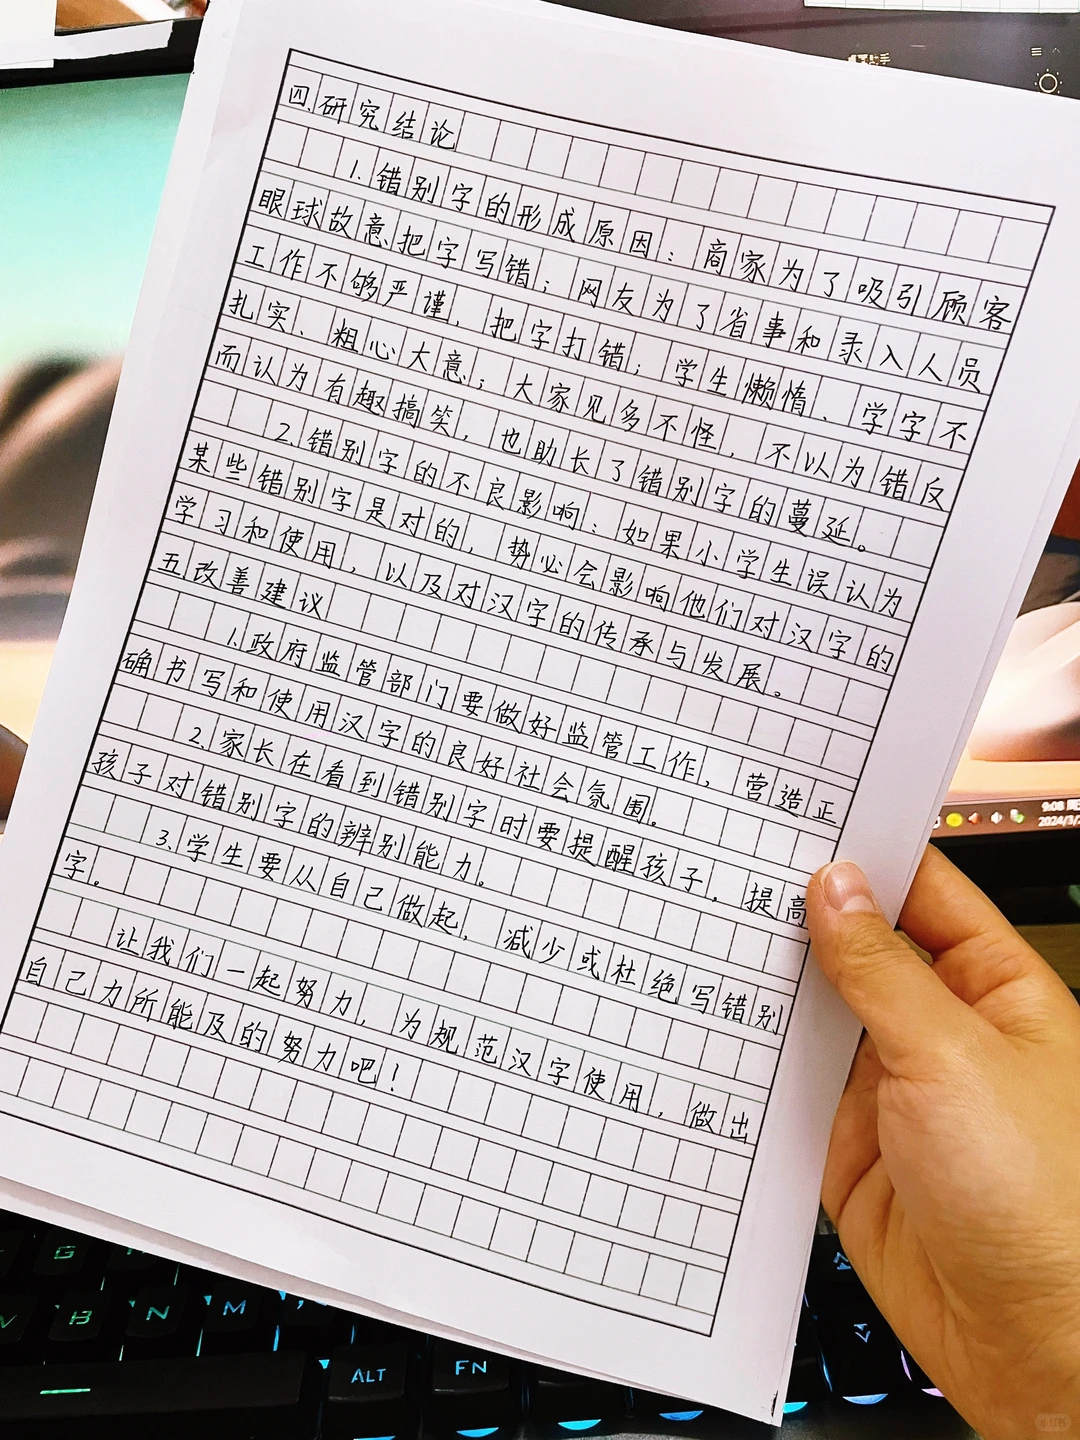 四、研究结论
1.错别字的形成原因：商家为了吸引顾客
眼球故意把字写错；网友为了省事和录入人员
工作不够严谨，把字打错；学生懒惰、学字不
扎实、粗心大意；大家见多不怪，不以为错反
而认为有趣搞笑，也助长了错别字的蔓延。
2.错别字的不良影响：如果小学生误认为
某些错别字是对的，势必会影响他们对汉字的
学习和使用，以及对汉字的传承与发展。
五改善建议
1.政府监管部门要做好监管工作，营造正
确书写和使用汉字的良好社会氛围。
2.家长在看到错别字时要提醒孩子，提高
孩子对错别字的辨别能力。
3.学生要从自己做起，减少或杜绝写错别
字。
让我们一起努力，为规范汉字使用，做出
自己力所能及的努力吧！
9:08
G
V
B
N
M
ALT
FN